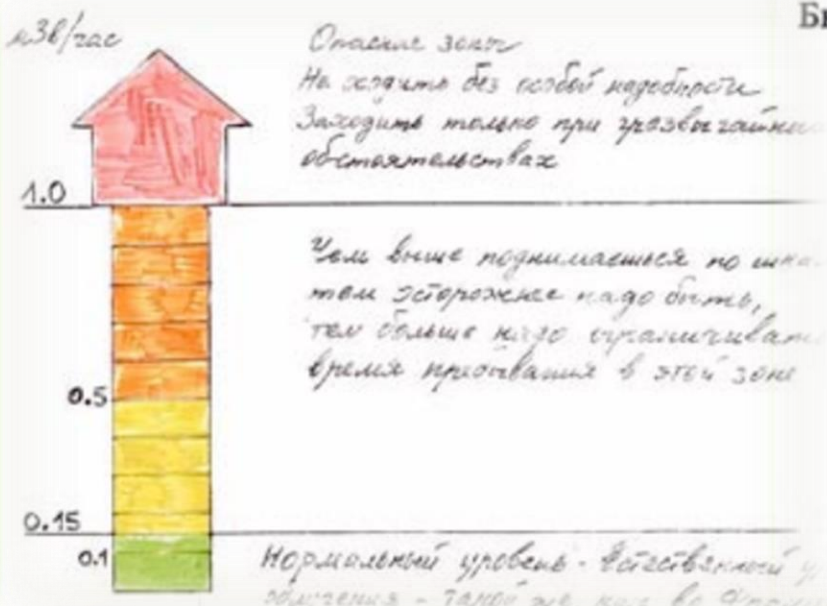 Би
мЗв/час
Опасные зоны
Не ходить без особой надобности
Заходить только при чрезвычайны
обстоятельствах
1.0
Чем выше поднимаешься по шка
тем осторожнее надо быть,
тем больше надо ограничивать
время пребывания в этой зоне
0.5
0.15
0.1
Нормальный уровень - Естественный у
облучения - такой же как во